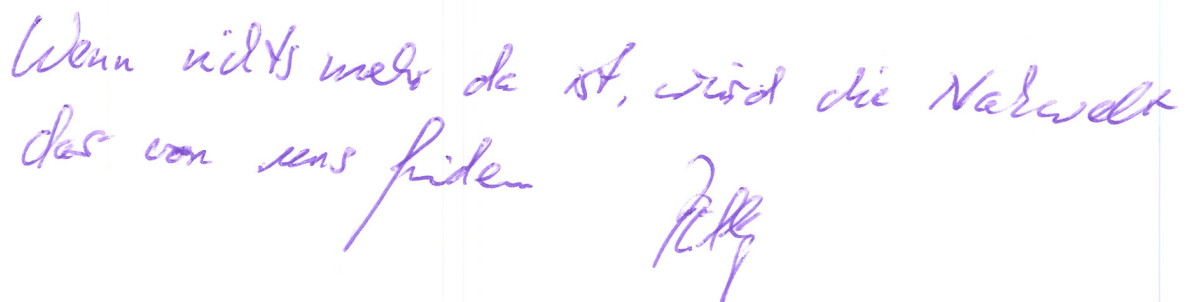 Wenn nichts mehr da ist, wird die Nachwelt
das von uns finden